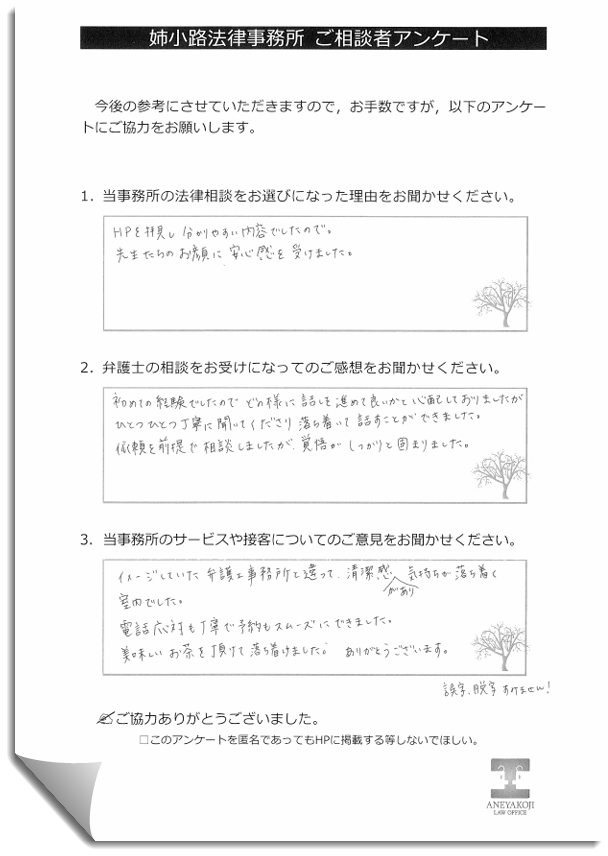 姉小路法律事務所 ご相談者アンケート
今後の参考にさせていただきますので，お手数ですが，以下のアンケー
トにご協力をお願いします。
1．当事務所の法律相談をお選びになった理由をお聞かせください。
HPを拝見し 分かりやすい内容でしたので。
先生たちのお顔に 安心感を 受けました。
2．弁護士の相談をお受けになってのご感想をお聞かせください。
初めての経験でしたので どの様に 話しを進めて良いかと心配しておりましたが
ひとつひとつ丁寧に聞いてくださり 落ち着いて 話すことができました。
依頼を前提で 相談しましたが、覚悟が しっかりと固まりました。
3．当事務所のサービスや接客についてのご意見をお聞かせください。
イメージしていた 弁護士事務所と違って、清潔感があり 気持ちが落ち着く
室内でした。
電話応対も丁寧で予約もスムーズにできました。
美味しいお茶を頂けて落ち着けました。 ありがとうございます。
誤字、脱字 すいません!
ご協力ありがとうございました。
□このアンケートを匿名であってもHPに掲載する等しないでほしい。
ANEYAKOJI
LAW OFFICE